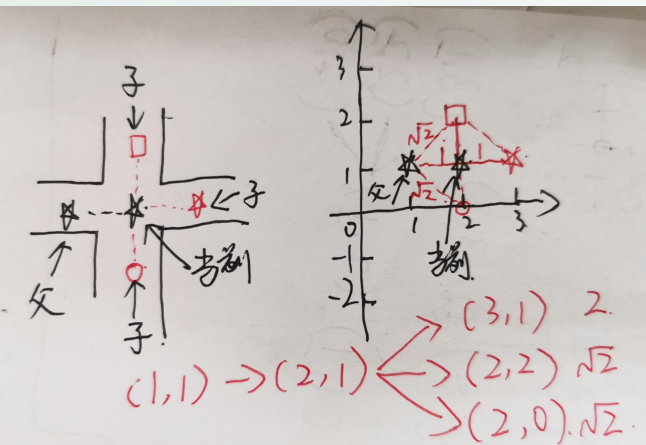 子
子
父
当前
子
3
2
1
0
-1
-2
1
2
3
√2
1
1
√2
父
当前
(1,1) → (2,1)
(3,1) 2.
(2,2) √2
(2,0). √2.